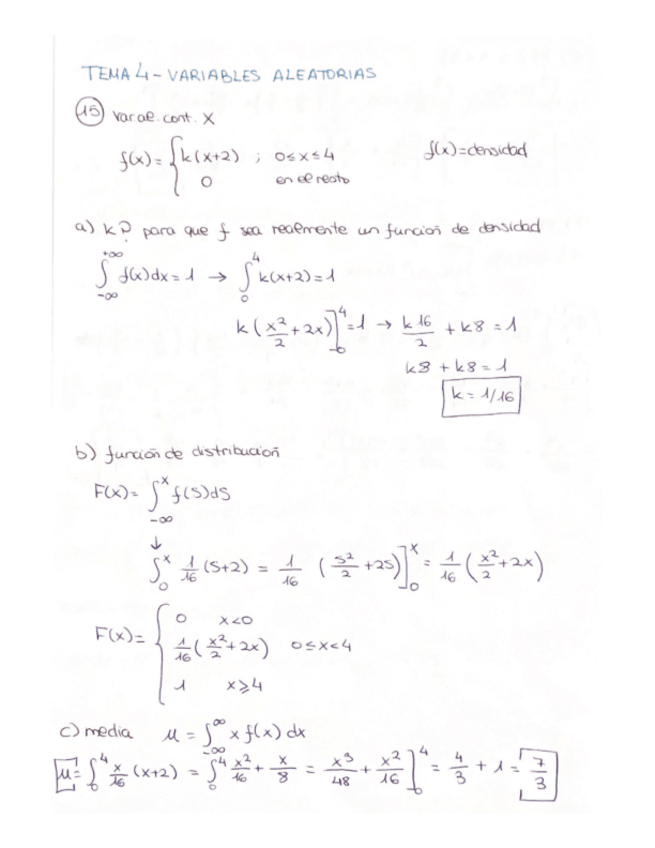 TEMA 4 - VARIABLES ALEATORIAS
15 var al. cont. X
f(x) = { k(x+2) ; 0≤x≤4 f(x)=densidad
0 en el resto
a) k? para que f sea realmente un función de densidad
∫_{-∞}^{+∞} f(x)dx = 1 → ∫_0^4 k(x+2) = 1
k (x²/2 + 2x)]_0^4 = 1 → k16/2 + k8 = 1
k8 + k8 = 1
k = 1/16
b) función de distribución
F(x) = ∫_{-∞}^x f(s)ds
↓
∫_0^x 1/16 (s+2) = 1/16 (s²/2 + 2s)]_0^x = 1/16 (x²/2 + 2x)
F(x) = { 0 x<0
1/16 (x²/2 + 2x) 0≤x<4
1 x≥4
c) media μ = ∫_{-∞}^∞ x f(x) dx
μ = ∫_0^4 x/16 (x+2) = ∫_0^4 x²/16 + x/8 = x³/48 + x²/16 ]_0^4 = 4/3 + 1 = 7/3